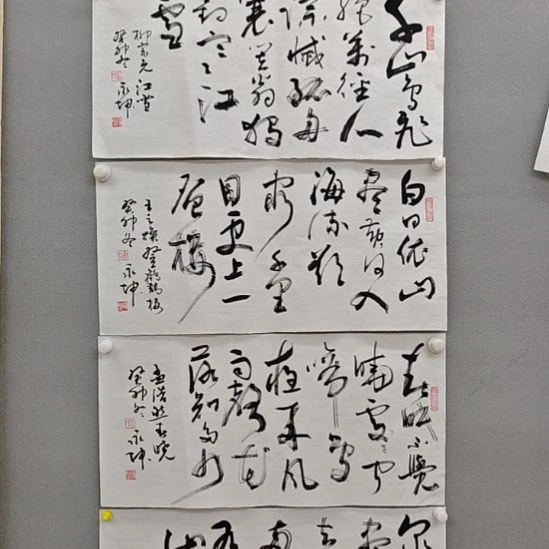 千山鳥飛
絕萬徑人
踪滅孤舟
蓑笠翁獨
釣寒江
雪
柳宗元江雪
癸卯冬 永坤
白日依山
盡黄河入
海流欲
窮千里
目更上一
層樓
王之渙登鸛鵲樓
癸卯冬 永坤
春眠不覺
曉處處聞
啼鳥
夜来風
雨聲花
落知多少
孟浩然春曉
癸卯冬 永坤